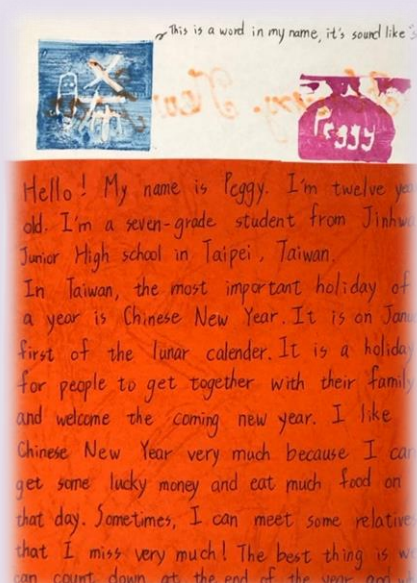 This is a word in my name, it's sound like
Peggy
Hello! My name is Peggy. I'm twelve
old. I'm a seven-grade student from
Junior High school in Taipei, Taiwan.
In Taiwan, the most important holiday of
a year is Chinese New Year. It is on
first of the lunar calender. It is a holiday
for people to get together with their
and welcome the coming new year. I like
Chinese New Year very much because I can
get some lucky money and eat much food on
that day. Sometimes, I can meet some
that I miss very much! The best thing is
can count down at the end of the year